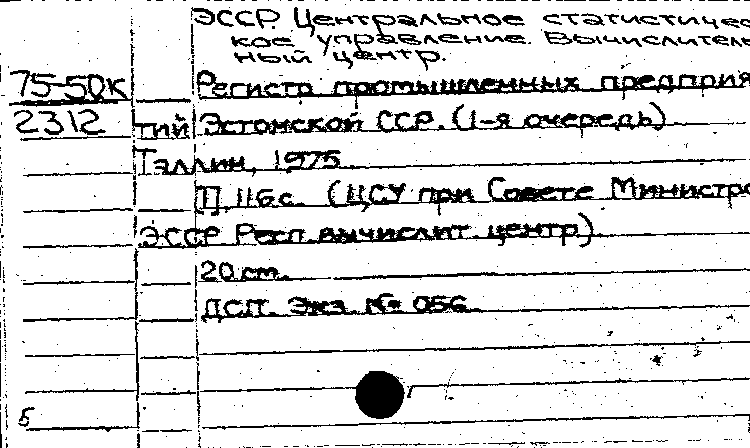 ЭССР. Центральное статистичес
кое управление. Вычислитель
ный центр.
75-50к Регистр промышленных предприя
2312 тий Эстонской ССР. (1-я очередь)
Таллин, 1975.
[1], 116 с. (ЦСУ при Совете Министро
ЭССР Респ. вычислит. центр).
20 см.
ДСП. Экз. № 056.
Б